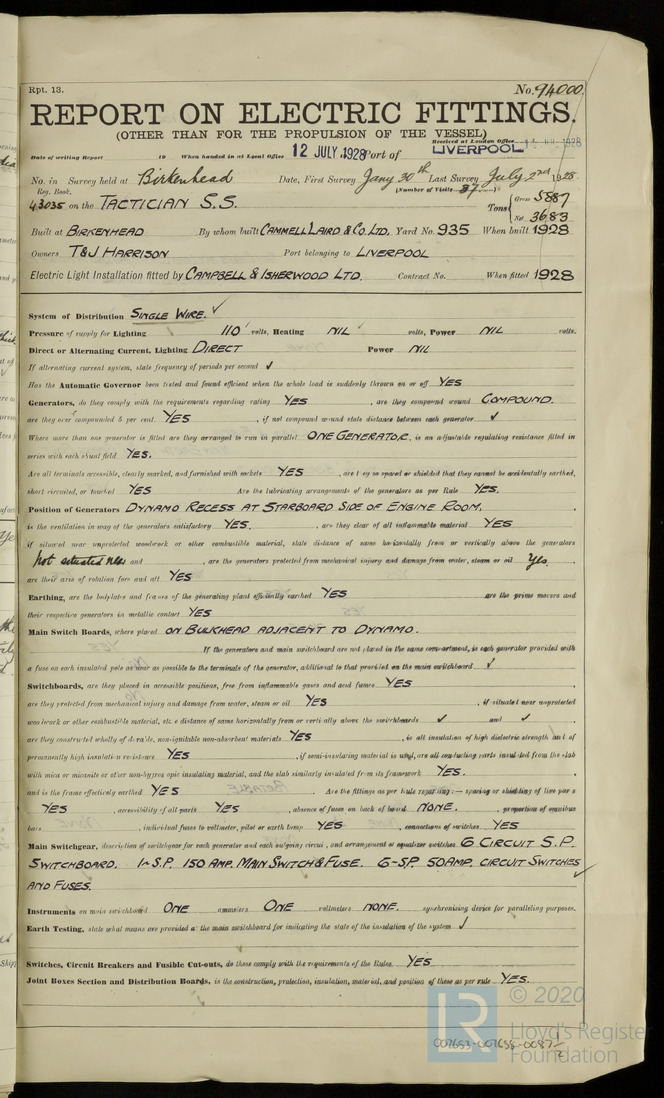 Rpt. 13. No. 94000.
REPORT ON ELECTRIC FITTINGS.
(OTHER THAN FOR THE PROPULSION OF THE VESSEL)
Received at London Office
Date of writing Report 19 When handed in at Local Office 12 JULY 1928 Port of LIVERPOOL
No. in Survey held at Birkenhead Date, First Survey Jany 30th Last Survey July 2nd 1928
Reg. Book. (Number of Visits 37
43035 on the TACTICIAN S.S. Tons { Gross 5887
Net 3683
Built at BIRKENHEAD By whom built CAMMELL LAIRD & CO. LTD. Yard No. 935 When built 1928
Owners T & J HARRISON Port belonging to LIVERPOOL
Electric Light Installation fitted by CAMPBELL & ISHERWOOD LTD. Contract No. When fitted 1928
System of Distribution SINGLE WIRE. ✓
Pressure of supply for Lighting 110 volts, Heating NIL volts, Power NIL volts.
Direct or Alternating Current, Lighting DIRECT Power NIL
If alternating current system, state frequency of periods per second ✓
Has the Automatic Governor been tested and found efficient when the whole load is suddenly thrown on or off YES
Generators, do they comply with the requirements regarding rating YES, are they compound wound COMPOUND.
are they over compounded 5 per cent. YES, if not compound wound state distance between each generator ✓
Where more than one generator is fitted are they arranged to run in parallel ONE GENERATOR, is an adjustable regulating resistance fitted in
series with each shunt field YES.
Are all terminals accessible, clearly marked, and furnished with sockets YES, are they so spaced or shielded that they cannot be accidentally earthed,
short circuited, or touched YES Are the lubricating arrangements of the generators as per Rule YES.
Position of Generators DYNAMO RECESS AT STARBOARD SIDE OF ENGINE ROOM.
is the ventilation in way of the generators satisfactory YES., are they clear of all inflammable material YES
if situated near unprotected woodwork or other combustible material, state distance of same horizontally from or vertically above the generators
Not situated near and, are the generators protected from mechanical injury and damage from water, steam or oil Yes.
are their axis of rotation fore and aft YES
Earthing, are the bedplates and frames of the generating plant efficiently earthed YES are the prime movers and
their respective generators in metallic contact YES
Main Switch Boards, where placed ON BULKHEAD ADJACENT TO DYNAMO.
If the generators and main switchboard are not placed in the same compartment, is each generator provided with
a fuse on each insulated pole as near as possible to the terminals of the generator, additional to that provided on the main switchboard ✓
Switchboards, are they placed in accessible positions, free from inflammable gases and acid fumes YES
are they protected from mechanical injury and damage from water, steam or oil YES, if situated near unprotected
woodwork or other combustible material, state distance of same horizontally from or vertically above the switchboards ✓ and ✓
are they constructed wholly of durable, non-ignitable non-absorbent materials YES, is all insulation of high dielectric strength and of
permanently high insulation resistance YES, if semi-insulating material is used, are all conducting parts insulated from the slab
with mica or micanite or other non-hygroscopic insulating material, and the slab similarly insulated from its framework YES.
and is the frame effectively earthed YES Are the fittings as per Rule regarding:— spacing or shielding of live parts
YES, accessibility of all parts YES, absence of fuses on back of board NONE., proportion of omnibus
bars, individual fuses to voltmeter, pilot or earth lamp YES, connections of switches YES
Main Switchgear, description of switchgear for each generator and each outgoing circuit, and arrangement of equalizer switches 6 CIRCUIT S.P.
SWITCHBOARD. 1-S.P. 150 AMP. MAIN SWITCH & FUSE. 6-SP. 50AMP. CIRCUIT SWITCHES ✓
AND FUSES.
Instruments on main switchboard ONE ammeters ONE voltmeters NONE. synchronising device for paralleling purposes.
Earth Testing, state what means are provided at the main switchboard for indicating the state of the insulation of the system ✓
Switches, Circuit Breakers and Fusible Cut-outs, do these comply with the requirements of the Rules YES
Joint Boxes Section and Distribution Boards, is the construction, protection, insulation, material, and position of these as per rule YES.
LR © 2020
Lloyd's Register
Foundation
007653-007658-0087 1/2